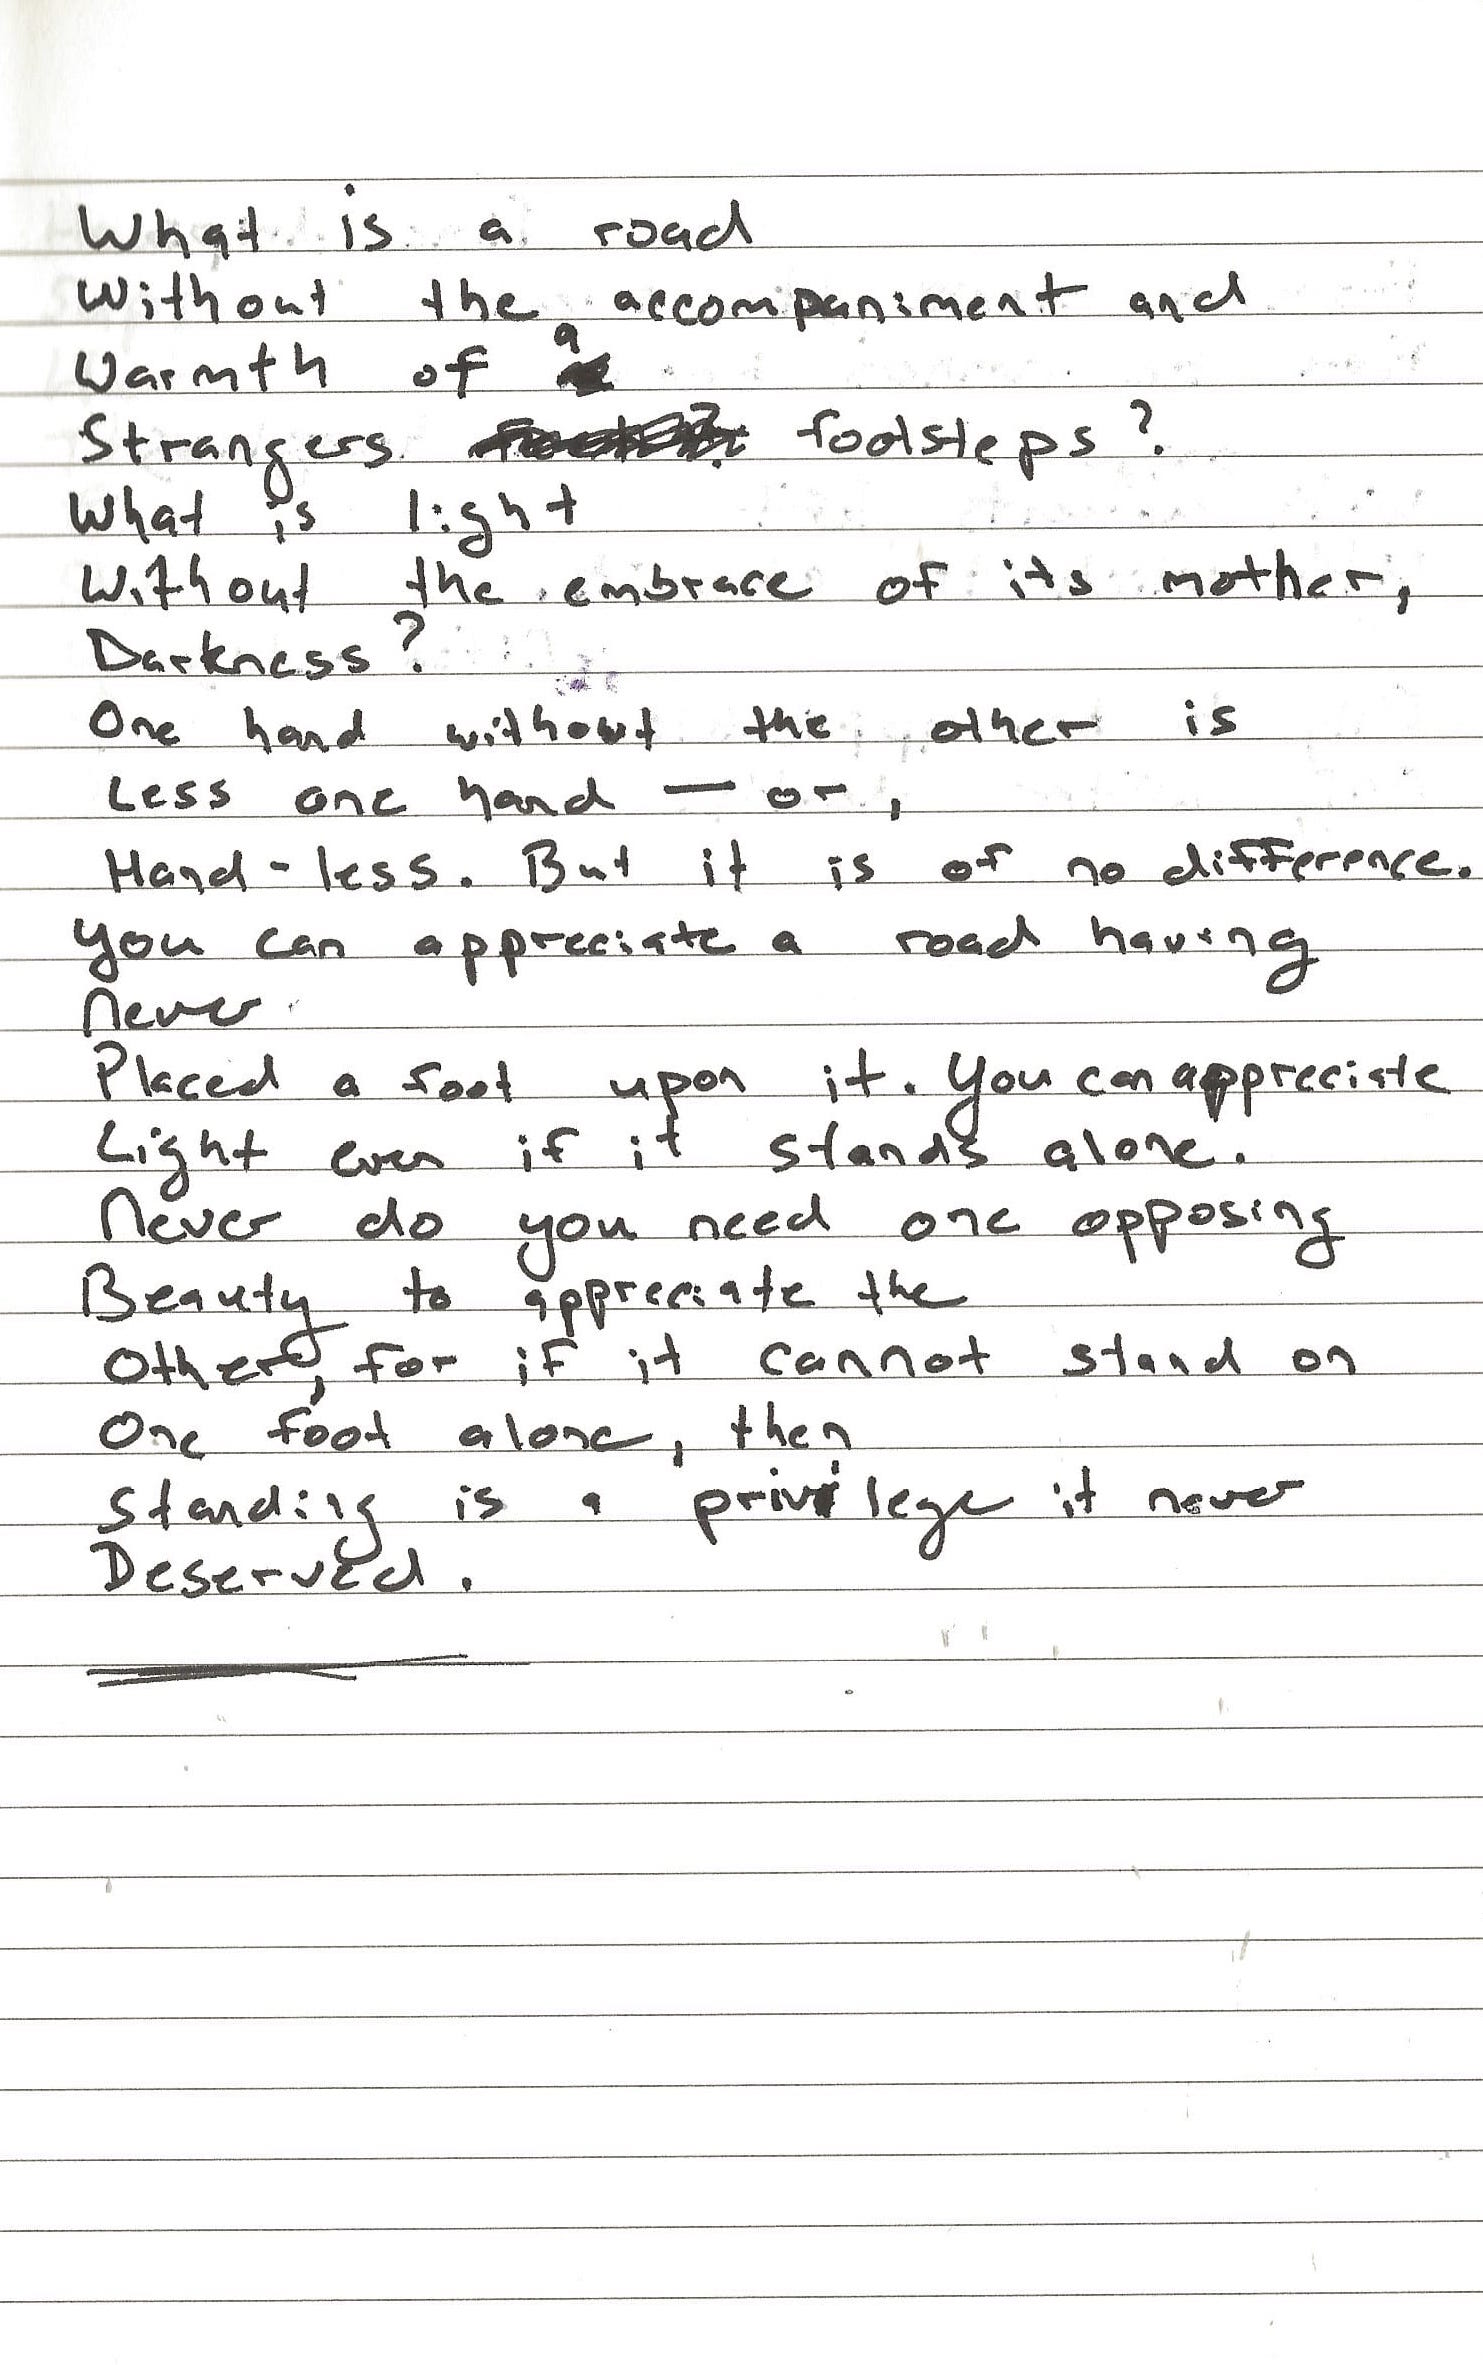 What is a road
Without the accompaniment and
Warmth of a
Strangers footsteps?
What is light
Without the embrace of its mother,
Darkness?
One hand without the other is
Less one hand — or,
Hand-less. But it is of no difference.
You can appreciate a road having
Never
Placed a foot upon it. You can appreciate
Light even if it stands alone.
Never do you need one opposing
Beauty to appreciate the
Other, for if it cannot stand on
One foot alone, then
Standing is a privilege it never
Deserved.